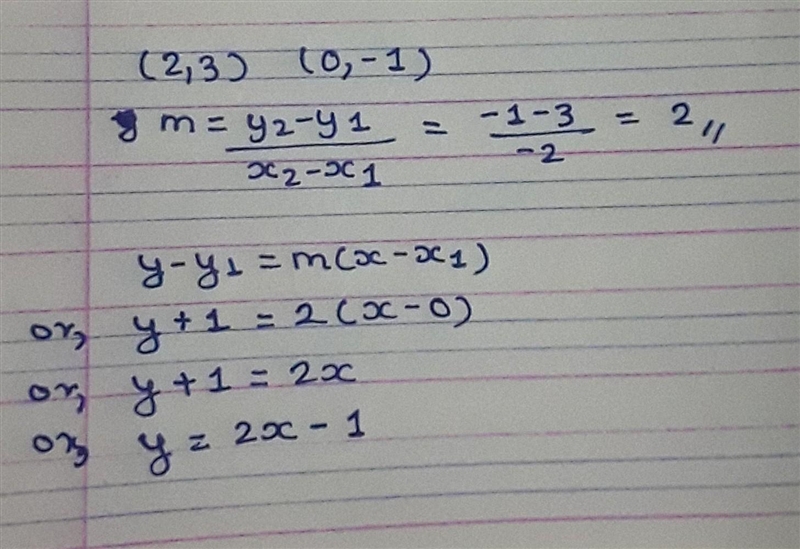 (2,3) (0,-1)
m = y2-y1 / x2-x1 = -1-3 / -2 = 2 //
y-y1 = m(x-x1)
or, y+1 = 2(x-0)
or, y+1 = 2x
or, y = 2x-1